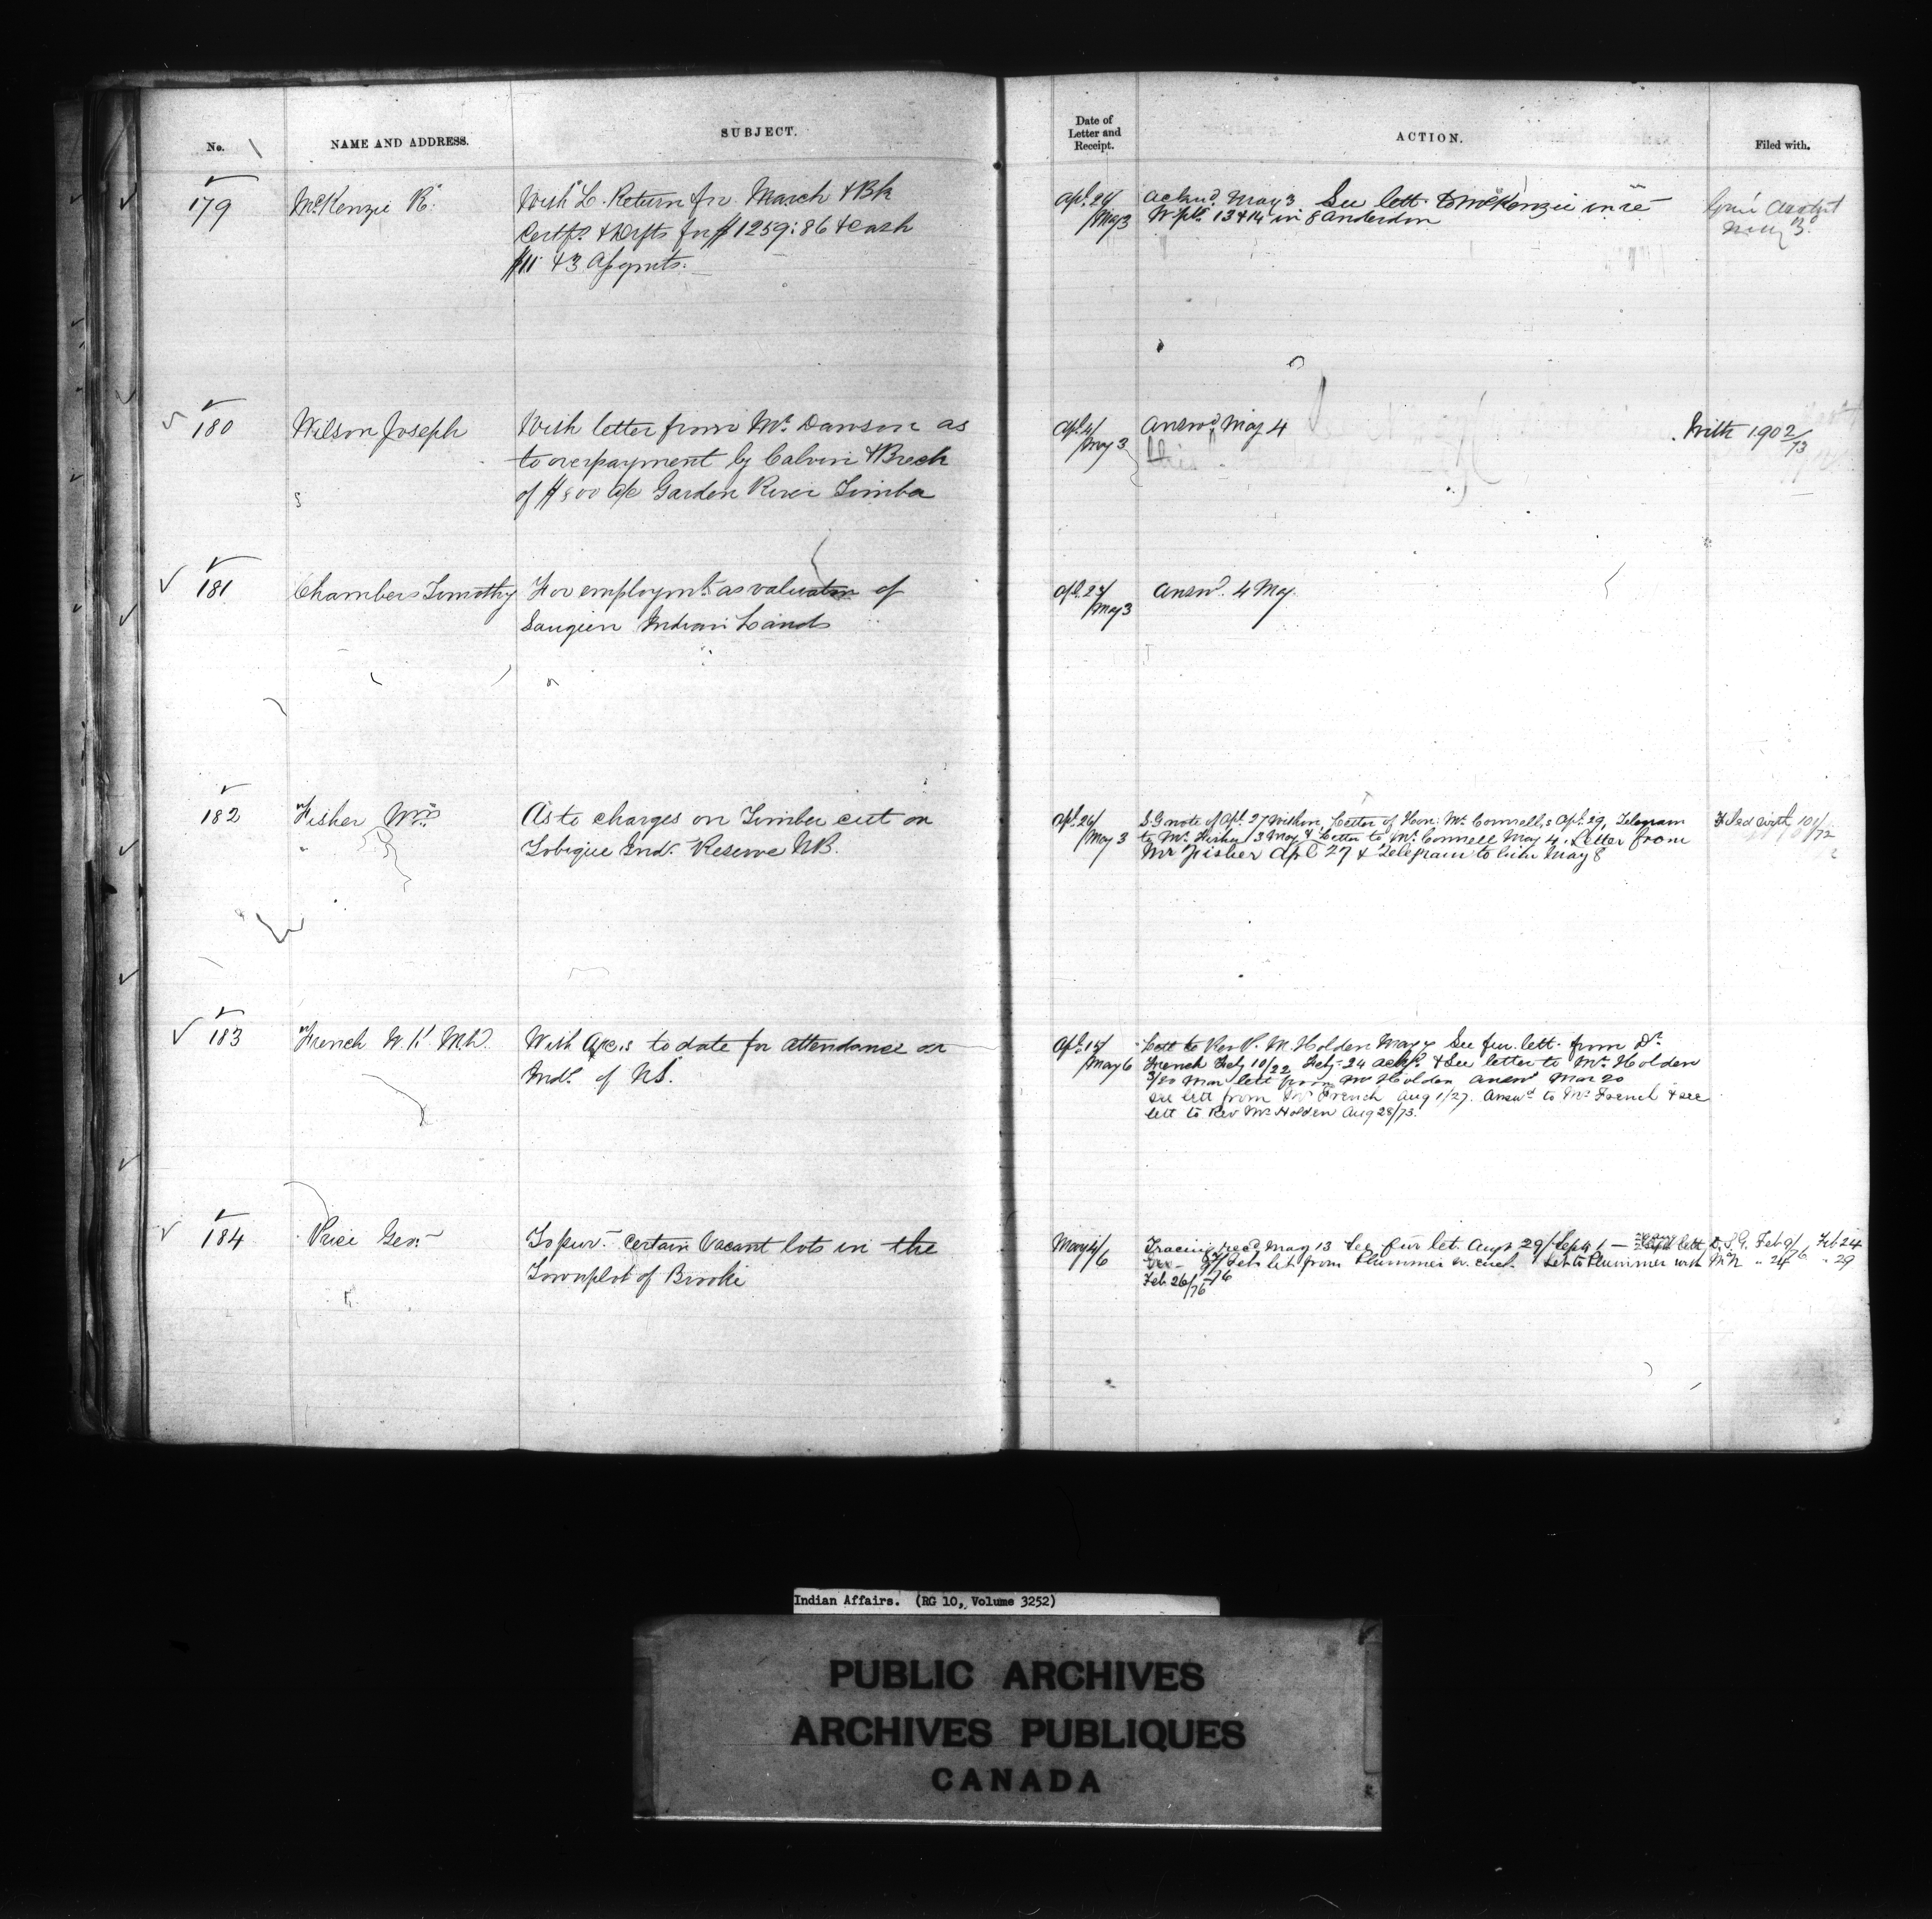 No. NAME AND ADDRESS. SUBJECT. Date of Letter and Receipt. ACTION. Filed with.
179 McKenzie R. With L. Return for March & Bk
Certfs. & Drfts for $1259:86 & Cash
$11 & 3 Assgmts.
Apl. 24/May 3 Acknd. May 3. See lett. to McKenzie in re
W. pts. 13 & 14 in 8 Anderdon
May 3
180 Wilson Joseph With letter from Mr. Dawson as
to overpayment by Calvin & Breck
of $500 a/c Garden River Timber
Apl. 4/May 3 Answd. May 4
With 1902/73
181 Chambers Timothy For employmt. as valuator of
Saugeen Indian Lands
Apl. 23/May 3 Answd. 4 May.
182 Fisher Wm. As to charges on Timber cut on
Tobique Ind. Reserve NB.
Apl. 26/May 3 S.G note of Apl. 27 Withn. Letter of Hon: Mr. Connell,s Apl. 29, Telegram
to Mr. Fisher /3 May & Letter to Mr. Connell May 4. Letter from
Mr Fisher Apl 27 & Telegram to him May 8
Filed with 101/72
183 French W. M.D. With a/c,s to date for attendance on
Inds. of NS.
Apl. 15/May 6 Lett to Rev R. M. Holden May 7 See fur. lett. from Dr.
French Feby 10/22 Feby. 24 & See letter to Mr. Holden
3/20 Mar lett from Mr Holden answd Mar 20
see lett from Dr French Aug 1/27. Answd to Mr French & see
lett to Rev Mr Holden Aug 28/73.
184 Price Geo. To pur. certain Vacant lots in the
Townplot of Brooke
May 4/6 Tracing recd May 13 See fur let. Augt 29/Sept 1 — lett D.S.G. Feb 9/76 Feb 24
Feb let from Plummer w. encl. Let to Plummer with " 24 " 29
Feb 26/76
Indian Affairs. (RG 10, Volume 3252)
PUBLIC ARCHIVES
ARCHIVES PUBLIQUES
CANADA